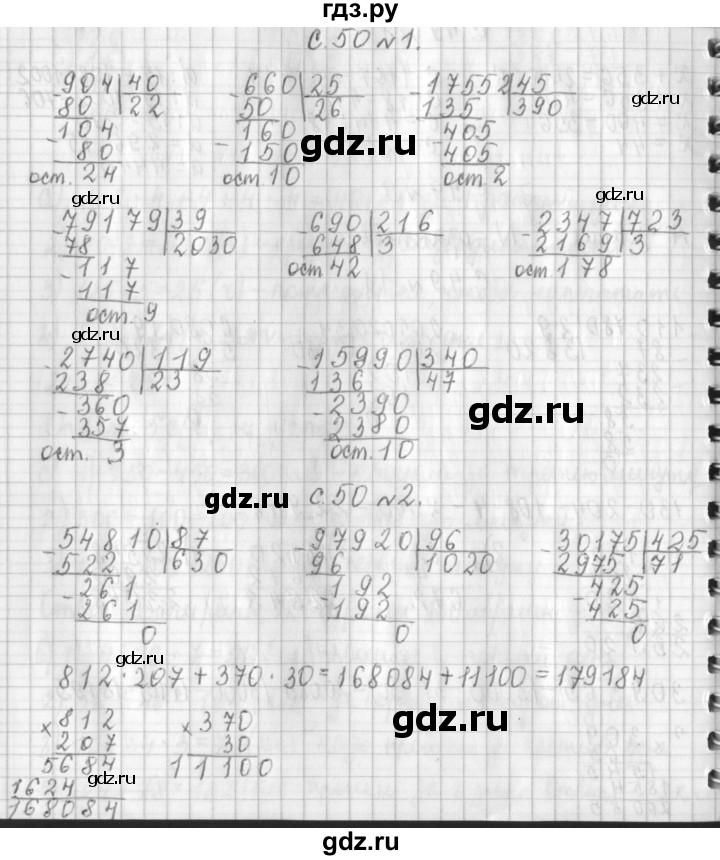 гдз.ру
с. 50 №1.
904 40 660 25 17552 45
80 22 50 26 135 390
gdz.ru
104 160 405
gdz.ru
80 150 405
ост. 24 ост. 10 ост 2
gdz.ru gdz.ru
79179 39 690 216 2347 723
78 2030 648 3 2169 3
117 ост 42 ост 178
117
ост. 9
gdz.ru
2740 119 15990 340
238 23 136 47
360 2390
gdz.ru
357 2380
ост. 3 ост. 10
gdz.ru
с. 50 №2.
54810 87 97920 96 30175 425
522 630 96 1020 2975 71
gdz.ru
261 192 425
261 192 425
0 0 0
gdz.ru
812 · 207 + 370 · 30 = 168084 + 11100 = 179184
gdz.ru
× 812 × 370
207 30
5684 11100
gdz.ru
1624
168084
gdz.ru